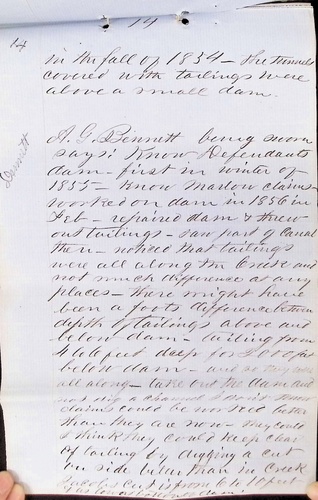 14
14
in the fall of 1854 - the tunnels
covered with tailings were
above a small dam.
Bennett
A. G. Bennett being sworn
says: Know Defendants
dam - first in winter of
1855 - Know Marlow claims -
worked on dam in 1856 in
Feb - repaired dam & threw
out tailings - saw part of Canal
then - noticed that tailings
were all along the Creek and
not much difference at any
places - there might have
been a foots difference between
depth of tailings above and
below dam - tailing from
4 to 6 feet deep for
below dam - and
all along - take out the dam and
not dig a channel I don't know
claims could be worked better
than they are now - they could
I think they could keep clear
of tailing by digging a cut
on side better than in Creek
cut is from 6 to 10 feet